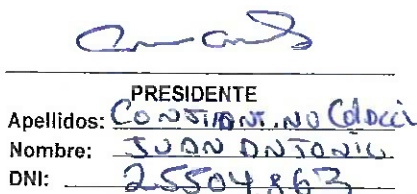 PRESIDENTE
Apellidos: CONSTANTINO Colacci
Nombre: JUAN ANTONIO
DNI: 25504863